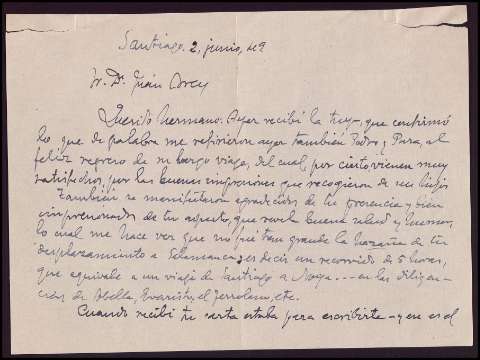 Santiago, 2, junio, 49
Sr. D. Juan
Querido hermano: Ayer recibí la tuya, que confirmó
lo que de palabra me refirieron ayer también Pedro y Pura, al
feliz regreso de su largo viaje, del cual, por cierto vienen muy
satisfechos, por las buenas impresiones que recogieron de sus hijos
También se manifestaron agradecidos de tu presencia y bien
impresionados de tu aspecto, que revela buena salud y humor,
lo cual me hace ver que no fué tan grande la hazaña de tu
desplazamiento a Salamanca, es decir un recorrido de 5 horas,
que equivale a un viaje de Santiago a Noya... en las diligen-
cias de Abella, Evaristo, el Ferrolano, etc.
Cuando recibí tu carta estaba para escribirte y en es el